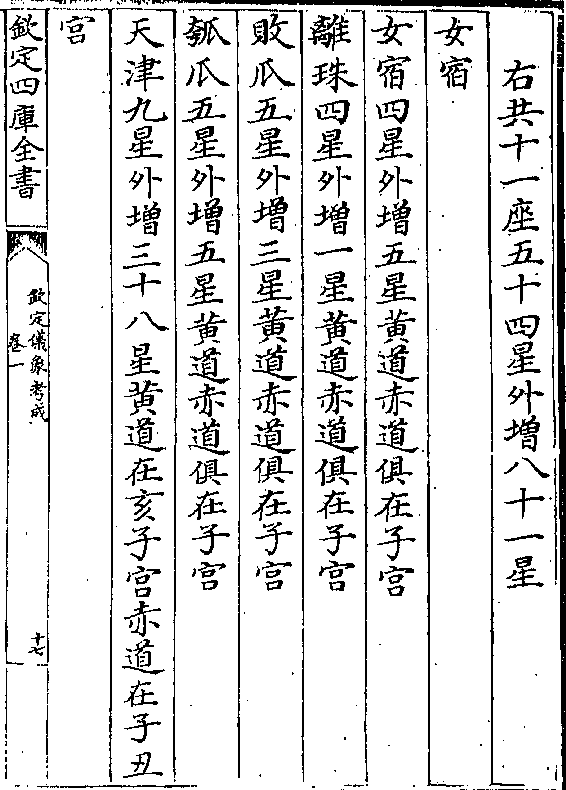 右共十一座五十四星外增八十一星
女宿
女宿四星外增五星黄道赤道俱在子宫
離珠四星外增一星黄道赤道俱在子宫
敗瓜五星外增三星黄道赤道俱在子宫
瓠瓜五星外增五星黄道赤道俱在子宫
天津九星外增三十八星黄道在亥子宫赤道在子丑
宫
欽定四庫全書
欽定儀象考成
卷一
十七